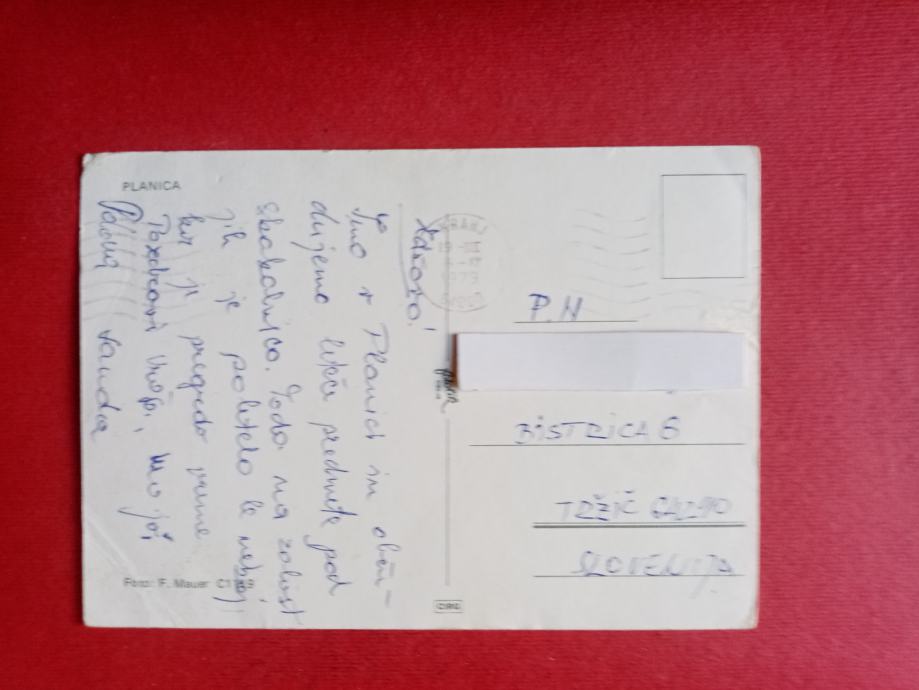 PLANICA
Zdravo!
Smo v Planici in obču-
dujemo leteče predmete pod
skakalnico. Toda na žalost
jih je poletelo le nekaj,
ker ji preveč
Pozdravi
Sandra
Foto: F. Mauer
KRANJ
1979
P.H
BISTRICA 6
TRŽIČ 64290
SLOVENIJA